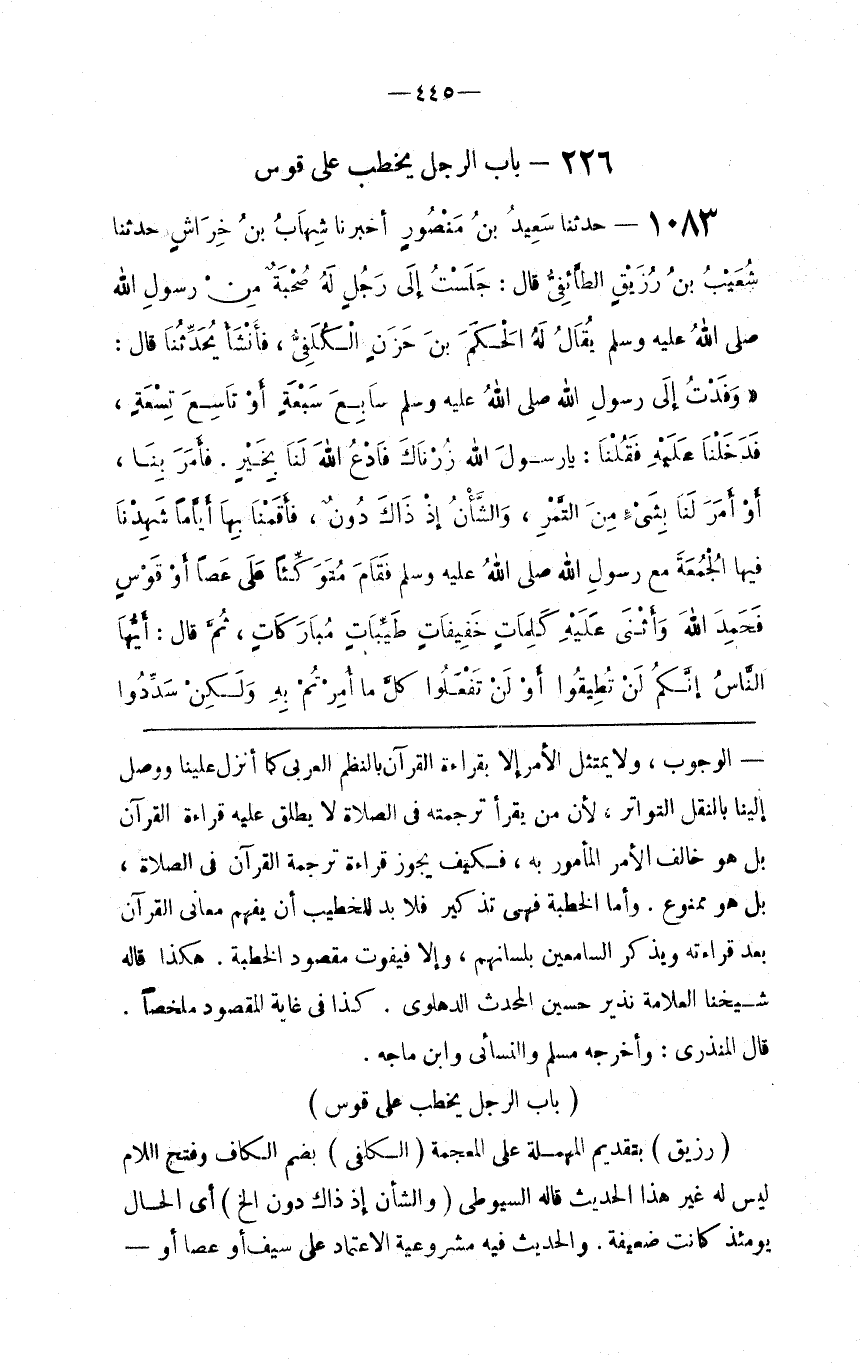 —٤٤٥—
٢٢٦ — باب الرجل يخطب على قوس
١٠٨٣ — حدثنا سَعِيدُ بنُ مَنْصُورٍ أخبرنا شِهَابُ بنُ خِرَاشٍ حدثنا
شُعَيْبُ بنُ رُزَيْقٍ الطَّائِفِىُّ قال : جَلَسْتُ إِلَى رَجُلٍ لَهُ صُحْبَةٌ مِنْ رسولِ الله
صلى اللهُ عليه وسلم يُقَالُ لَهُ الْحَكَمَ بنَ حَزَنٍ الْكُلَفِىُّ ، فَأَنْشَأَ يُحَدِّثُنَا قال :
« وَفَدْتُ إِلَى رسولِ الله صلى اللهُ عليه وسلم سَابِعَ سَبْعَةٍ أَوْ تَاسِعَ تِسْعَةٍ ،
فَدَخَلْنَا عَلَيْهِ فَقُلْنَا : يارسولَ الله زُرْنَاكَ فَادْعُ اللهَ لَنَا بِخَيْرٍ . فأَمَرَ بِنَا ،
أَوْ أَمَرَ لَنَا بِشَىْءٍ مِنَ التَّمْرِ ، وَالشَّأْنُ إِذْ ذَاكَ دُونٌ ، فأَقَمْنَا بِهَا أَيَّاماً شَهِدْنَا
فيها الْجُمُعَةَ مع رسولِ الله صلى اللهُ عليه وسلم فَقَامَ مُتَوَكِّئاً عَلَى عَصاً أَوْ قَوْسٍ
فَحَمِدَ اللهَ وَأَثْنَى عَلَيْهِ كَلِمَاتٍ خَفِيفَاتٍ طَيِّبَاتٍ مُبَارَكَاتٍ ، ثُمَّ قال : أَيُّهَا
النَّاسُ إِنَّكُمْ لَنْ تُطِيقُوا أَوْ لَنْ تَفْعَلُوا كلَّ ما أُمِرْتُمْ بِهِ وَلَكِنْ سَدِّدُوا
— الوجوب ، ولا يمتثل الأمر إلا بقراءة القرآن بالنظم العربى كما أنزل علينا ووصل
إلينا بالنقل التواتر ، لأن من يقرأ ترجمته فى الصلاة لا يطلق عليه قراءة القرآن
بل هو خالف الأمر المأمور به ، فكيف يجوز قراءة ترجمة القرآن فى الصلاة ،
بل هو ممنوع . وأما الخطبة فهى تذكير فلا بد للخطيب أن يفهم معانى القرآن
بعد قراءته ويذكر السامعين بلسانهم ، وإلا فيفوت مقصود الخطبة . هكذا قاله
شيخنا العلامة نذير حسين المحدث الدهلوى . كذا فى غاية المقصود ملخصاً .
قال المنذرى : وأخرجه مسلم والنسائى وابن ماجه .
( باب الرجل يخطب على قوس )
( رزيق ) بتقديم المهملة على المعجمة ( الكلفى ) بضم الكاف وفتح اللام
ليس له غير هذا الحديث قاله السيوطى ( والشأن إذ ذاك دون الخ ) أى الحال
يومئذ كانت ضعيفة . والحديث فيه مشروعية الاعتماد على سيف أو عصا أو —